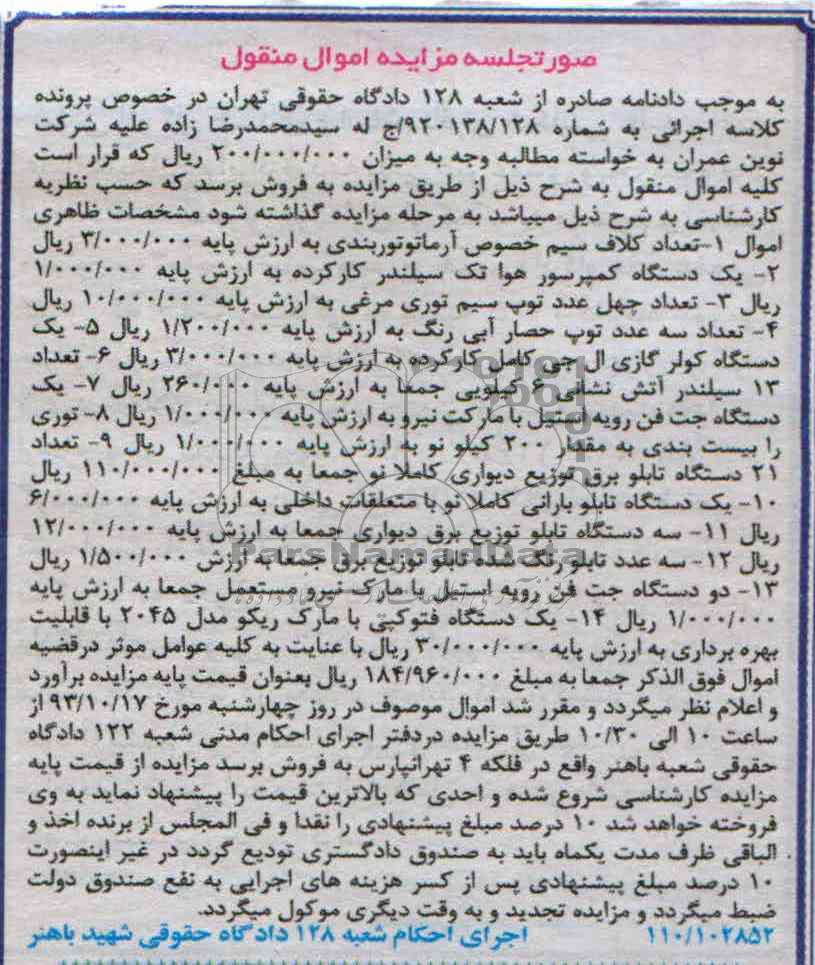 صورتجلسه مزایده اموال منقول
به موجب دادنامه صادره از شعبه ۱۲۸ دادگاه حقوقی تهران در خصوص پرونده
کلاسه اجرائی به شماره ۹۲۰۱۳۸/۱۲۸/ج له سیدمحمدرضا زاده علیه شرکت
نوین عمران به خواسته مطالبه وجه به میزان ۲۰۰/۰۰۰/۰۰۰ ریال که قرار است
کلیه اموال منقول به شرح ذیل از طریق مزایده به فروش برسد که حسب نظریه
کارشناسی به شرح ذیل میباشد به مرحله مزایده گذاشته شود مشخصات ظاهری
اموال ۱-تعداد کلاف سیم خصوص آرماتوتوربندی به ارزش پایه ۳/۰۰۰/۰۰۰ ریال
۲- یک دستگاه کمپرسور هوا تک سیلندر کارکرده به ارزش پایه ۱/۰۰۰/۰۰۰
ریال ۳- تعداد چهل عدد توپ سیم توری مرغی به ارزش پایه ۱۰/۰۰۰/۰۰۰ ریال
۴- تعداد سه عدد توپ حصار آبی رنگ به ارزش پایه ۱/۲۰۰/۰۰۰ ریال ۵- یک
دستگاه کولر گازی ال جی کامل کارکرده به ارزش پایه ۳/۰۰۰/۰۰۰ ریال ۶- تعداد
۱۳ سیلندر آتش نشانی ۶ کیلویی جمعا به ارزش پایه ۲۶۰/۰۰۰ ریال ۷- یک
دستگاه جت فن رویه استیل با مارکت نیرو به ارزش پایه ۱/۰۰۰/۰۰۰ ریال ۸- توری
را بیست بندی به مقدار ۲۰۰ کیلو نو به ارزش پایه ۱/۰۰۰/۰۰۰ ریال ۹- تعداد
۲۱ دستگاه تابلو برق توزیع دیواری کاملا نو جمعا به مبلغ ۱۱۰/۰۰۰/۰۰۰ ریال
۱۰- یک دستگاه تابلو بارانی کاملا نو با متعلقات داخلی به ارزش پایه ۶/۰۰۰/۰۰۰
ریال ۱۱- سه دستگاه تابلو توزیع برق دیواری جمعا به ارزش پایه ۱۲/۰۰۰/۰۰۰
ریال ۱۲- سه عدد تابلو رنگ شده تابلو توزیع برق جمعا به ارزش ۱/۵۰۰/۰۰۰ ریال
۱۳- دو دستگاه جت فن رویه استیل با مارک نیرو مستعمل جمعا به ارزش پایه
۱/۰۰۰/۰۰۰ ریال ۱۴- یک دستگاه فتوکپی با مارک ریکو مدل ۲۰۴۵ با قابلیت
بهره برداری به ارزش پایه ۳۰/۰۰۰/۰۰۰ ریال با عنایت به کلیه عوامل موثر درقضیه
اموال فوق الذکر جمعا به مبلغ ۱۸۴/۹۶۰/۰۰۰ ریال بعنوان قیمت پایه مزایده برآورد
و اعلام نظر میگردد و مقرر شد اموال موصوف در روز چهارشنبه مورخ ۹۳/۱۰/۱۷ از
ساعت ۱۰ الی ۱۰/۳۰ طریق مزایده دردفتر اجرای احکام مدنی شعبه ۱۲۲ دادگاه
حقوقی شعبه باهنر واقع در فلکه ۴ تهرانپارس به فروش برسد مزایده از قیمت پایه
مزایده کارشناسی شروع شده و احدی که بالاترین قیمت را پیشنهاد نماید به وی
فروخته خواهد شد ۱۰ درصد مبلغ پیشنهادی را نقدا و فی المجلس از برنده اخذ و
الباقی ظرف مدت یکماه باید به صندوق دادگستری تودیع گردد در غیر اینصورت
۱۰ درصد مبلغ پیشنهادی پس از کسر هزینه های اجرایی به نفع صندوق دولت
ضبط میگردد و مزایده تجدید و به وقت دیگری موکول میگردد.
۱۱۰/۱۰۲۸۵۲ اجرای احکام شعبه ۱۲۸ دادگاه حقوقی شهید باهنر
ParsNamadData